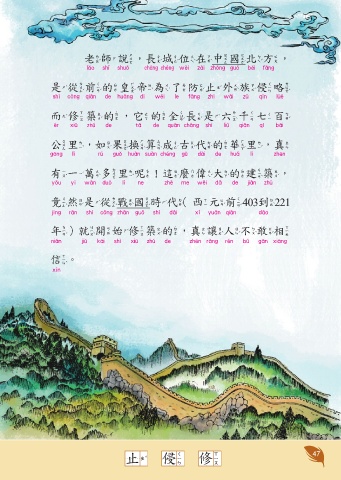 老師說，長城位在中國北方，
lǎo shī shuō cháng chéng wèi zài zhōng guó běi fāng
是從前的皇帝為了防止外族侵略
shì cóng qián de huáng dì wèi le fáng zhǐ wài zú qīn lüè
而修築的，它的全長是六千七百
ér xiū zhú de tā de quán cháng shì liù qiān qī bǎi
公里，如果換算成古代的華里，真
gōng lǐ rú guǒ huàn suàn chéng gǔ dài de huá lǐ zhēn
有一萬多里呢！這麼偉大的建築，
yǒu yí wàn duō lǐ ne zhè me wěi dà de jiàn zhú
竟然是從戰國時代（西元前403到221
jìng rán shì cóng zhàn guó shí dài xī yuán qián dào
年）就開始修築的，真讓人不敢相
nián jiù kāi shǐ xiū zhú de zhēn ràng rén bù gǎn xiāng
信。
xìn
止 侵 修
47